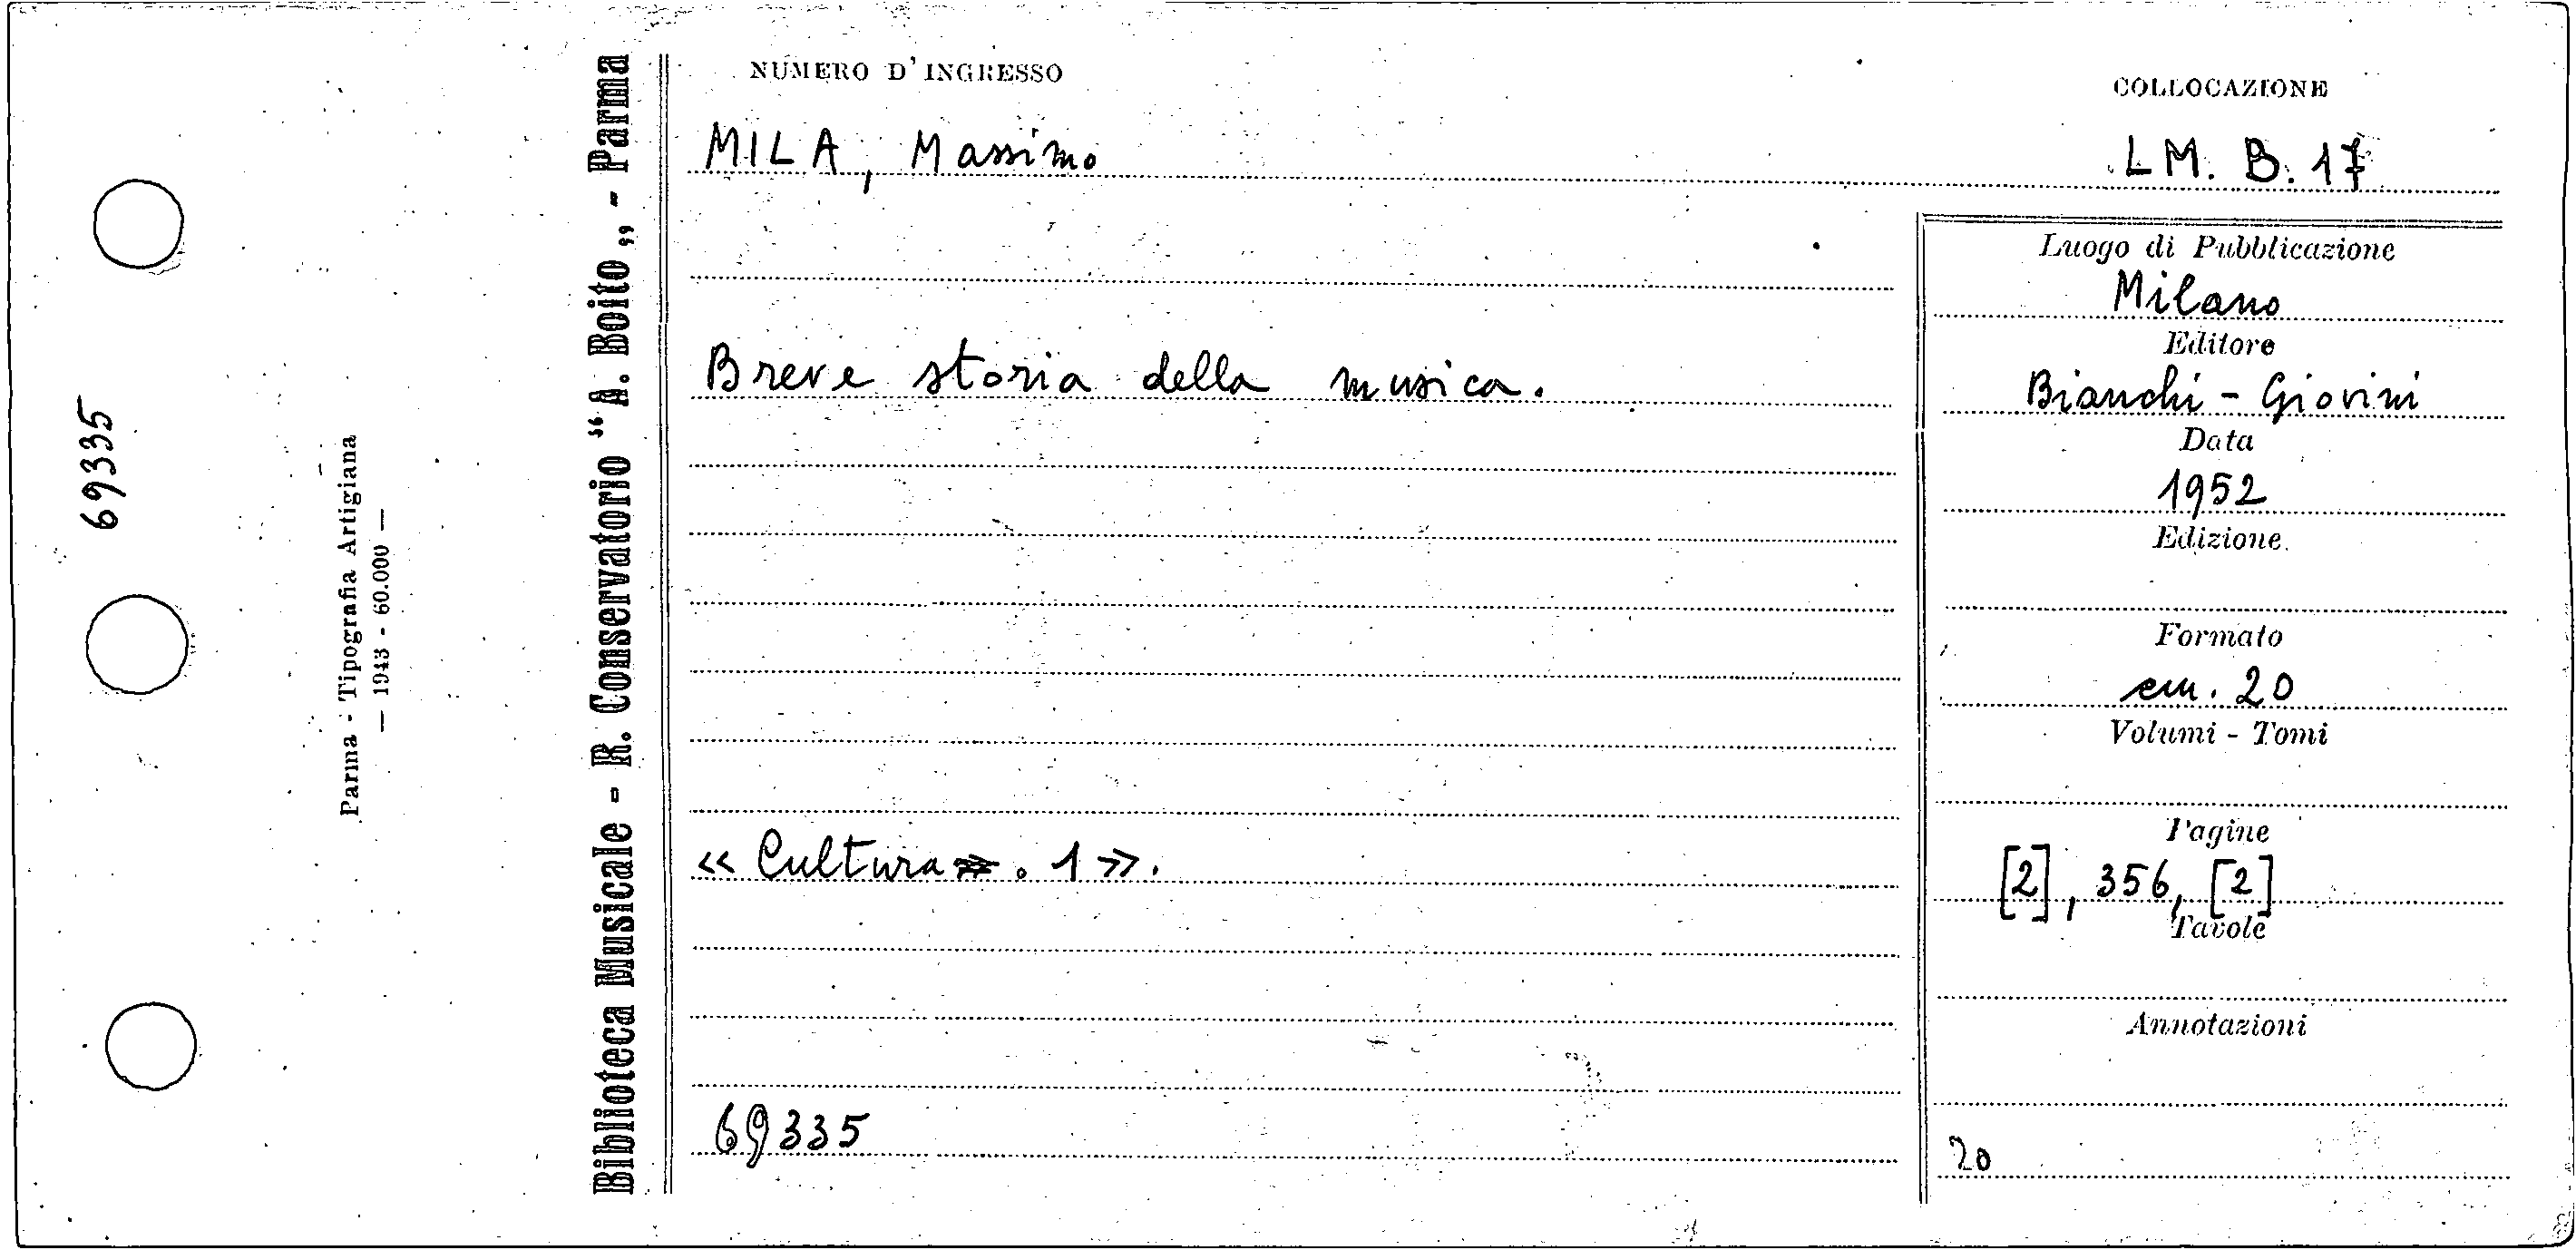 69335
Parma - Tipografia Artigiana
— 1943 - 60.000 —
Biblioteca Musicale - R. Conservatorio “A. Boito„ - Parma
NUMERO D'INGRESSO
COLLOCAZIONE
MILA, Massimo
LM. B. 17
Luogo di Pubblicazione
Milano
Editore
Breve storia della musica.
Bianchi - Giovini
Data
1952
Edizione
Formato
cm. 20
Volumi - Tomi
Pagine
« Cultura . 1 ».
[2], 356, [2]
Tavole
Annotazioni
69335
20